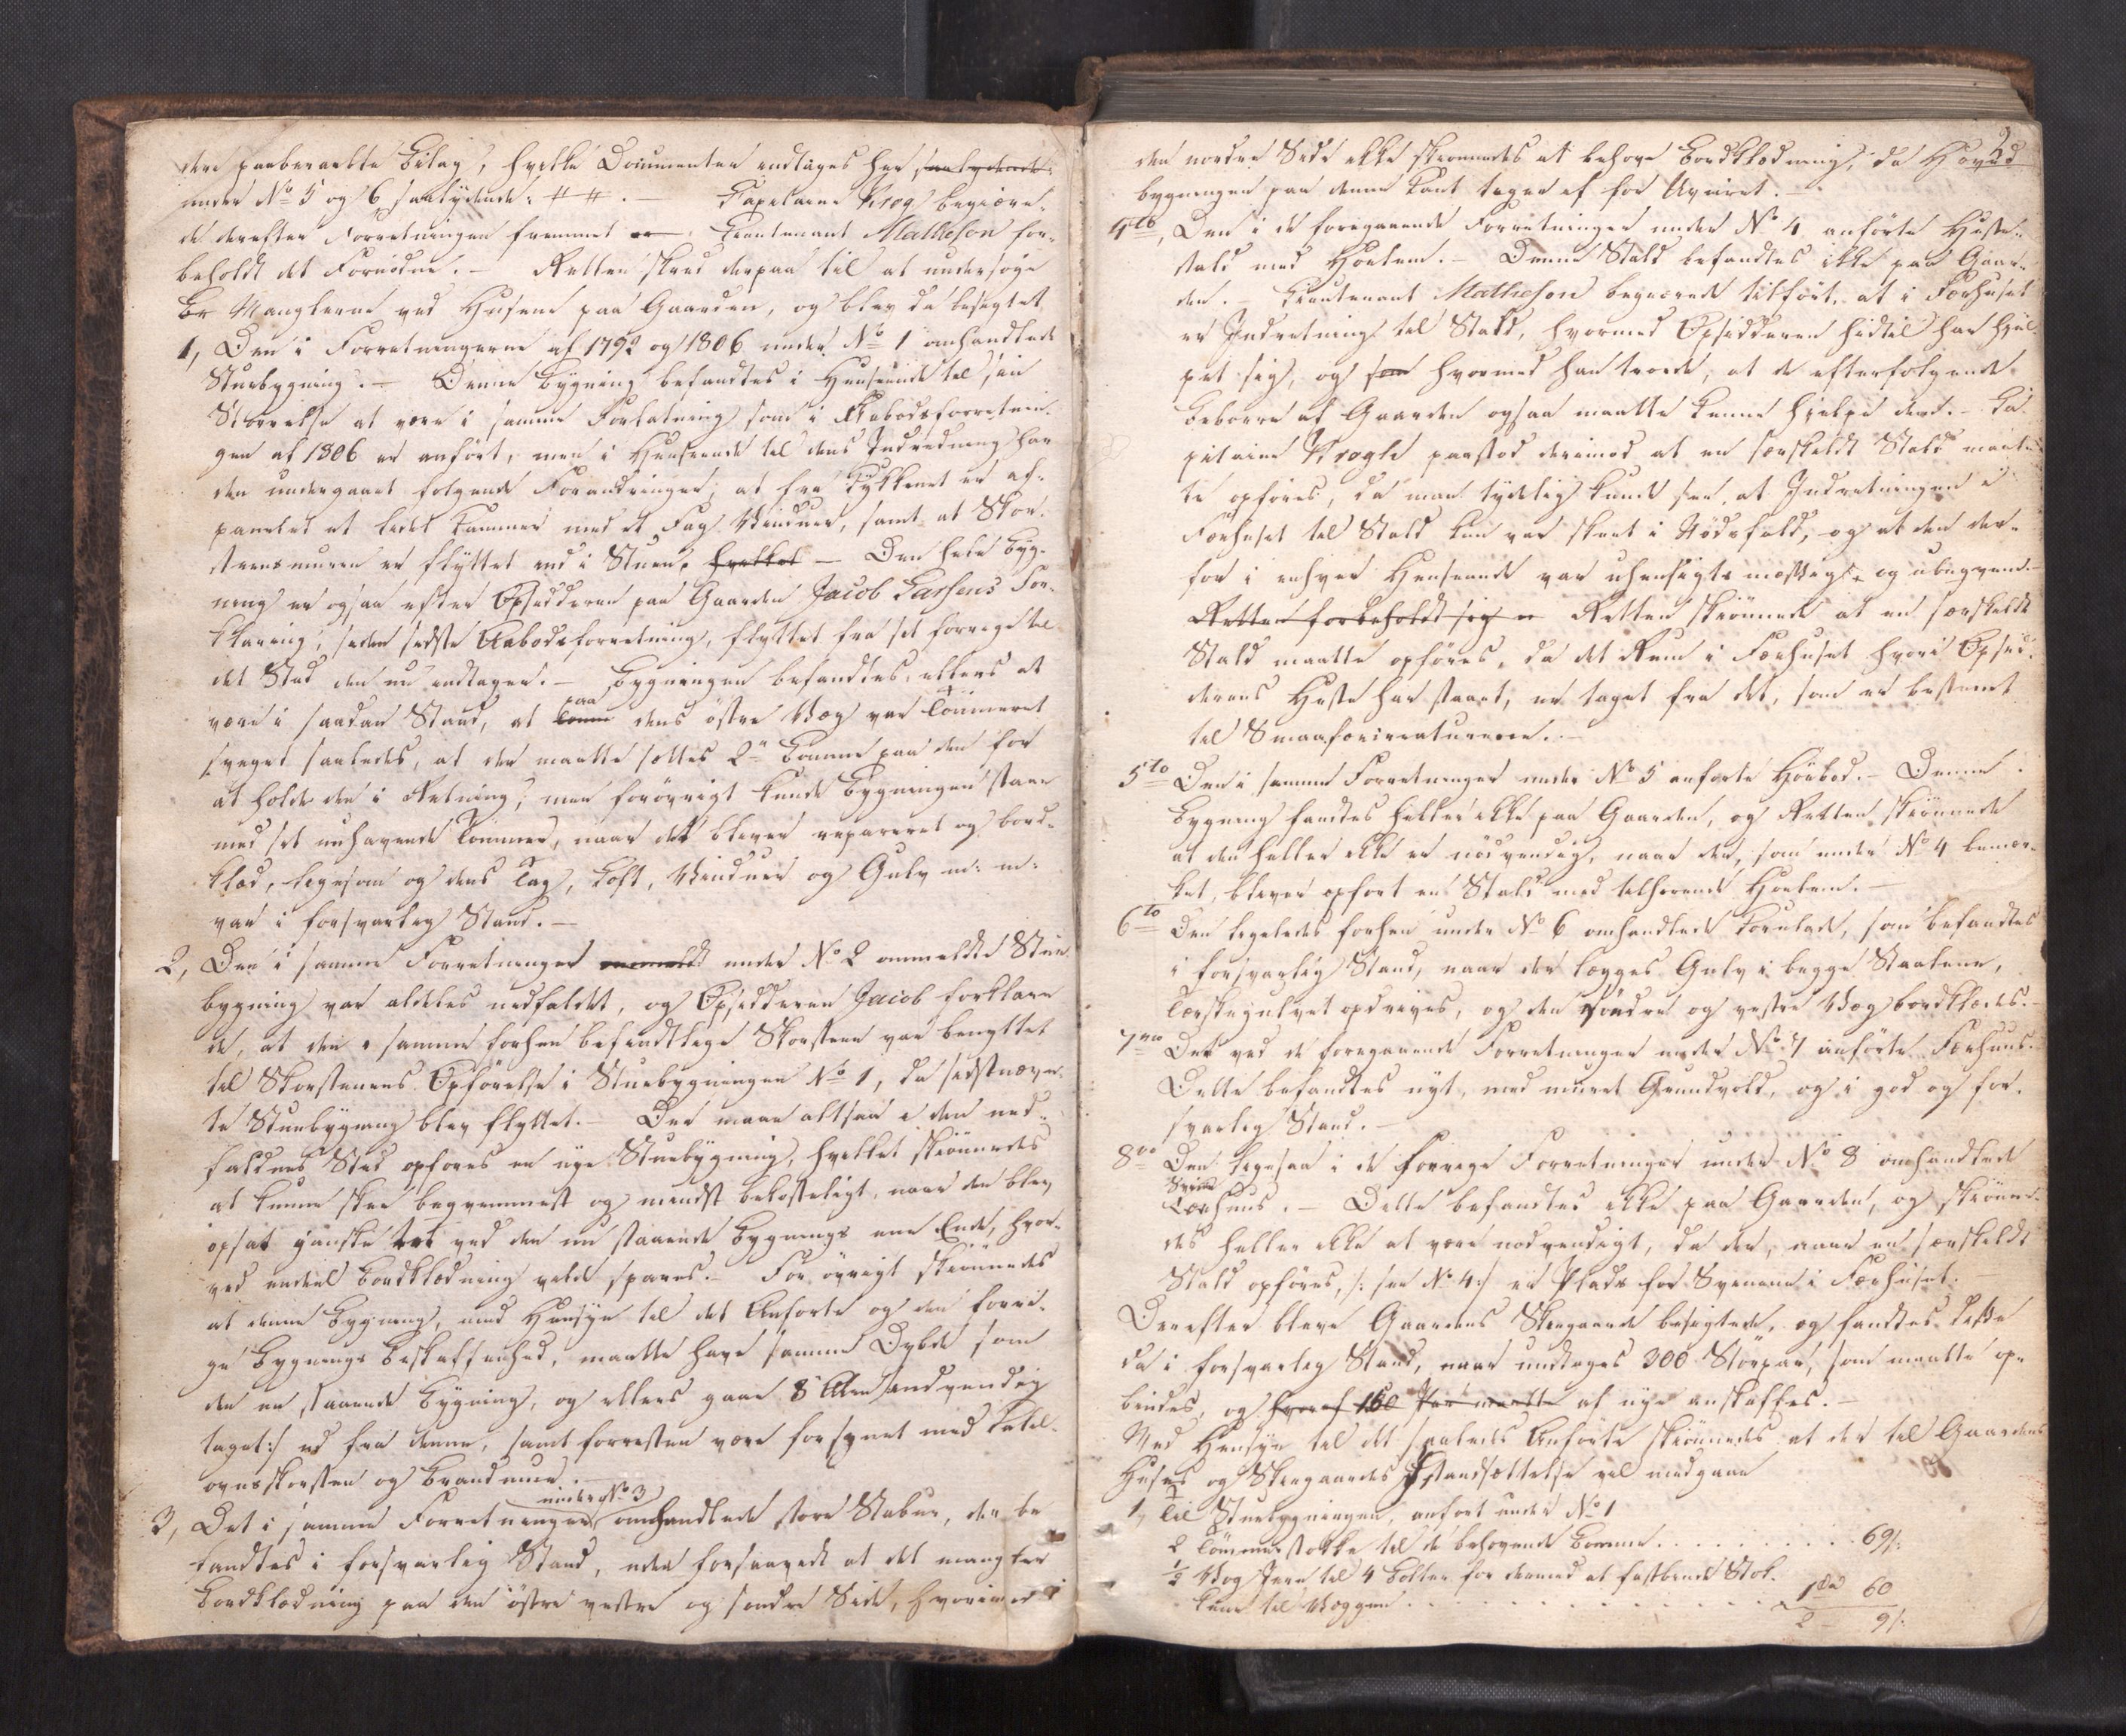 dere paaberaabte Bilag, hvilke Documenter indtages her saalydende:
under No 5 og 6 saalydende: # #. — Capitaine Krog begjære-
de derefter Forretningen fremmet. Lieutenant Matheson for-
beholdt det Fornödne. — Retten skred derpaa til at undersøge
Manglerne ved Husene paa Gaarden, og blev da besigtet
1, Den i Forretningerne af 1792 og 1806 under No 1 omhandlede
Stuebygning. — Denne Bygning befandtes i Henseende til sin
Störrelse at være i samme Forfatning som i Aabodsforretnin-
gen af 1806 er anfört, men i Henseende til dens Indredning har
den undergaaet følgende Forandringer; at fra Kjökkenet er af-
panelet et lidet Kammer med et Fag Vinduer, samt at Skor-
steensmuren er flyttet ind i Stuen, hvilket — Den hele Byg-
ning er ogsaa efter Opsidderen paa Gaarden Jacob Larsens For-
klaring, siden sidste Aabodsforretning, flyttet fra sit forrige til
det Sted den nu indtager. — Bygningen befandtes ellers at
være i saadan Stand, at paa dens östre Væg var Tömmeret
sveget saaledes, at der maatte settes 2de Bomme paa den for
at holde den i Retning; men forövrigt kunde Bygningen staae
med sit nuhavende Tömmer, naar det bliver repareret og bord-
klæd, ligesom og dens Tag, Loft, Vinduer og Gulv m: m:
var i forsvarlig Stand. —
2, Den i samme Forretninger under No 2 ommeldte Stue-
bygning var aldeles nedfaldet, og Opsidderen Jacob forklare-
de, at den i samme forhen befindtlige Skorsteen var benyttet
til Skorstenens Opförelse i Stuebygningen No 1, da sidstnævn-
te Stuebygning blev flyttet. — Der maae altsaa i den ned-
faldnes Sted opføres en nye Stuebygning, hvilket skiönnedes
at kunne skee beqvemmest og mindst bekosteligt, naar den blev
opsat ganske tæt ved den nu staaende Bygnings ene Ende, hvor-
ved endeel Bordklædning vilde spares. — For övrigt skiönnedes
at denne Bygning, med Hensyn til det Anførte og den forri-
ge Bygnings Beskaffenhed, maatte have samme Dybde som
den nu staaende Bygning, og ellers gaae 8 Alen /:indvendig
taget:/ ud fra denne, samt forresten være forsynet med Kakel-
ovnsskorsten og Brandmuur. —
under No 3
3, Det i samme Forretninger omhandlede store Stabur, der be-
fandtes i forsvarlig Stand, uden forsaavidt at det mangler
Bordklædning paa den östre vestre og söndre Side, hvorimod
2
den nordre Side ikke skiönnedes at behøve Bordklædning, da Hoved-
bygningen paa denne Kant tager af for Uveiret. —
4to, Den i de foregaaende Forretninger under No 4 anförte Heste-
stald med Höelem. — Denne Stald befandtes ikke paa Gaar-
den. — Lieutenant Matheson begjærede tilført, at i Fæehuset
er Indretning til Stald, hvormed Opsidderen hidtil har hjul-
pet sig, og som hvormed han troede, at de efterfølgende
Beboere af Gaarden ogsaa maatte kunne hjelpe dem. — Ca-
pitaine Krogh paastod derimod at en særskildt Stald maat-
te opföres, da man tydelig kunde see, at Indretningen i
Fæehuset til Stald kun var skeet i Nödsfald, og at den der-
for i enhver Henseende var uhensigtsmæssig og ubeqvem. —
Retten forbeholdt sig Retten skiönnede at en særskildt
Stald maatte opföres, da det Rum i Fæehuset hvori Opsid-
derens Heste har staaet, er taget fra det, som er bestemt
til Smaafæecreaturerne. —
5to Den i samme Forretninger under No 5 anførte Höebod. — Denne
Bygning fandtes heller ikke paa Gaarden, og Retten skiönnede
at den heller ikke er nödvendig, naar der, som under No 4 bemær-
ket, bliver opfört en Stald med tilhørende Höelem. —
6to Den ligeledes forhen under No 6 omhandlede Kornlade, som befandtes
i forsvarlig Stand, naar der lægges Gulv i begge Staalene,
Tærskegulvet opdrives, og den söndre og vestre Væg bordklædes. —
7mo Det ved de foregaaende Forretninger under No 7 anförte Fæehuus.
Dette befandtes nyt, med muret Grundvold, og i god og for-
svarlig Stand. —
8vo Den ligesaa i de forrige Forretninger under No 8 omhandlede
Svine
huus. — Dette befandtes ikke paa Gaarden, og skiönne-
des heller ikke at være nödvendigt, da der, naar en særskildt
Stald opføres, /: see No 4:/ er Plads for Svinene i Fæehuset. —
Derefter bleve Gaardens Skigaarde besigtede, og fandtes disse
da i forsvarlig Stand, naar undtages 300 Störpar, som maatte op-
bindes, og hvoraf 160 Par maatte af nye anskaffes. —
Med Hensyn til det saaledes Anførte skiönnedes at der til Gaardens
Huses og Skigaardes Istandsættelse vil medgaae
1, Til Stuebygningen, anført under No 1
2 Tömmerstokke til de behøvende Bomme . . . . . . . . . 69 s:
1/2 Vog Jern til 4 Bolter for dermed at fastbinde Stok-
kene til Væggen . . . . . . . . . . . . . . . 1 Sd 60
2 - 9 s: